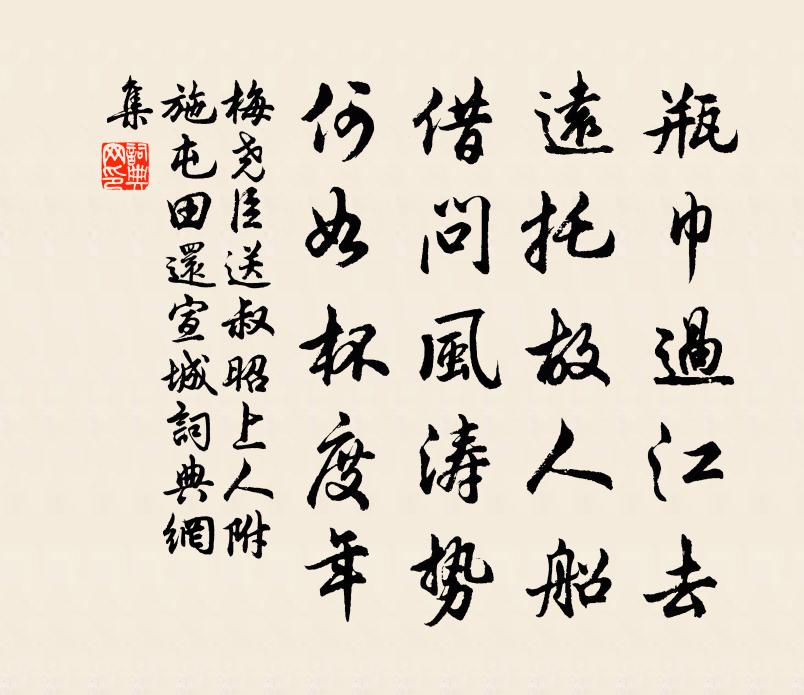 瓶巾過江去
遠托故人船
借問風濤勢
何如杯度年
梅尧臣送叔昭上人附
施屯田還宣城詞典網
集
詞典
网印